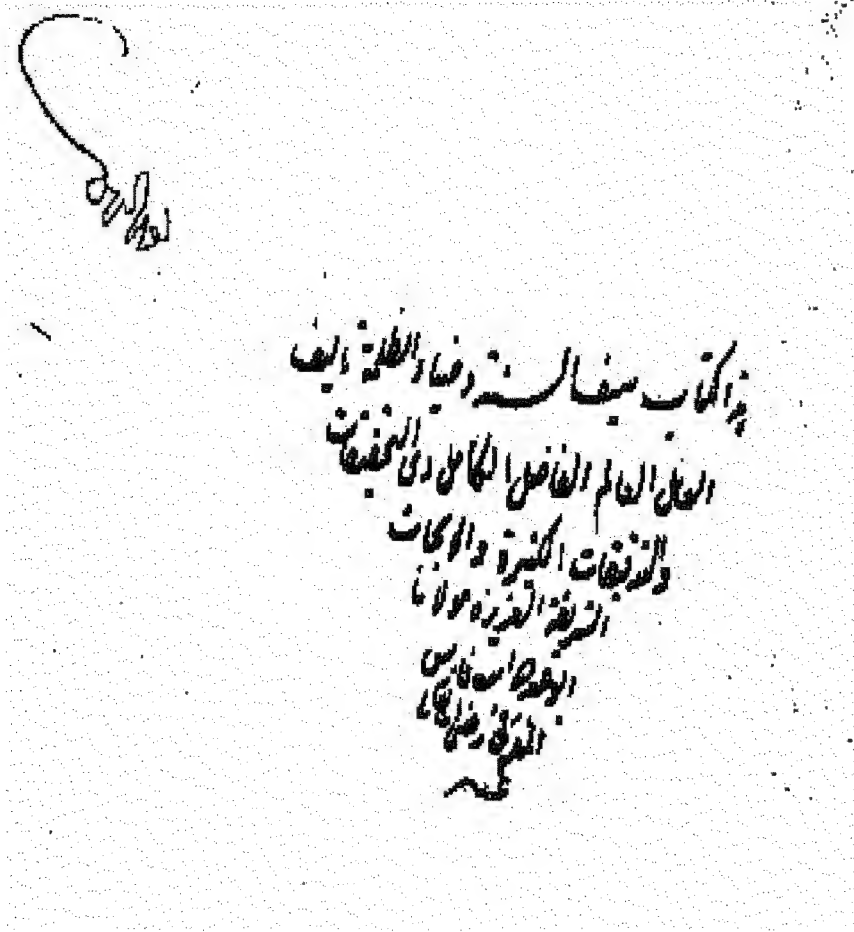 هذا كتاب سيف السنة وضياء الظلمة تاليف
العالم الفاضل الكامل ذى التحقيقات
والتدقيقات الكثيرة والابحاث
الشريفة العزيزه مولانا
ابن فارس
رضى